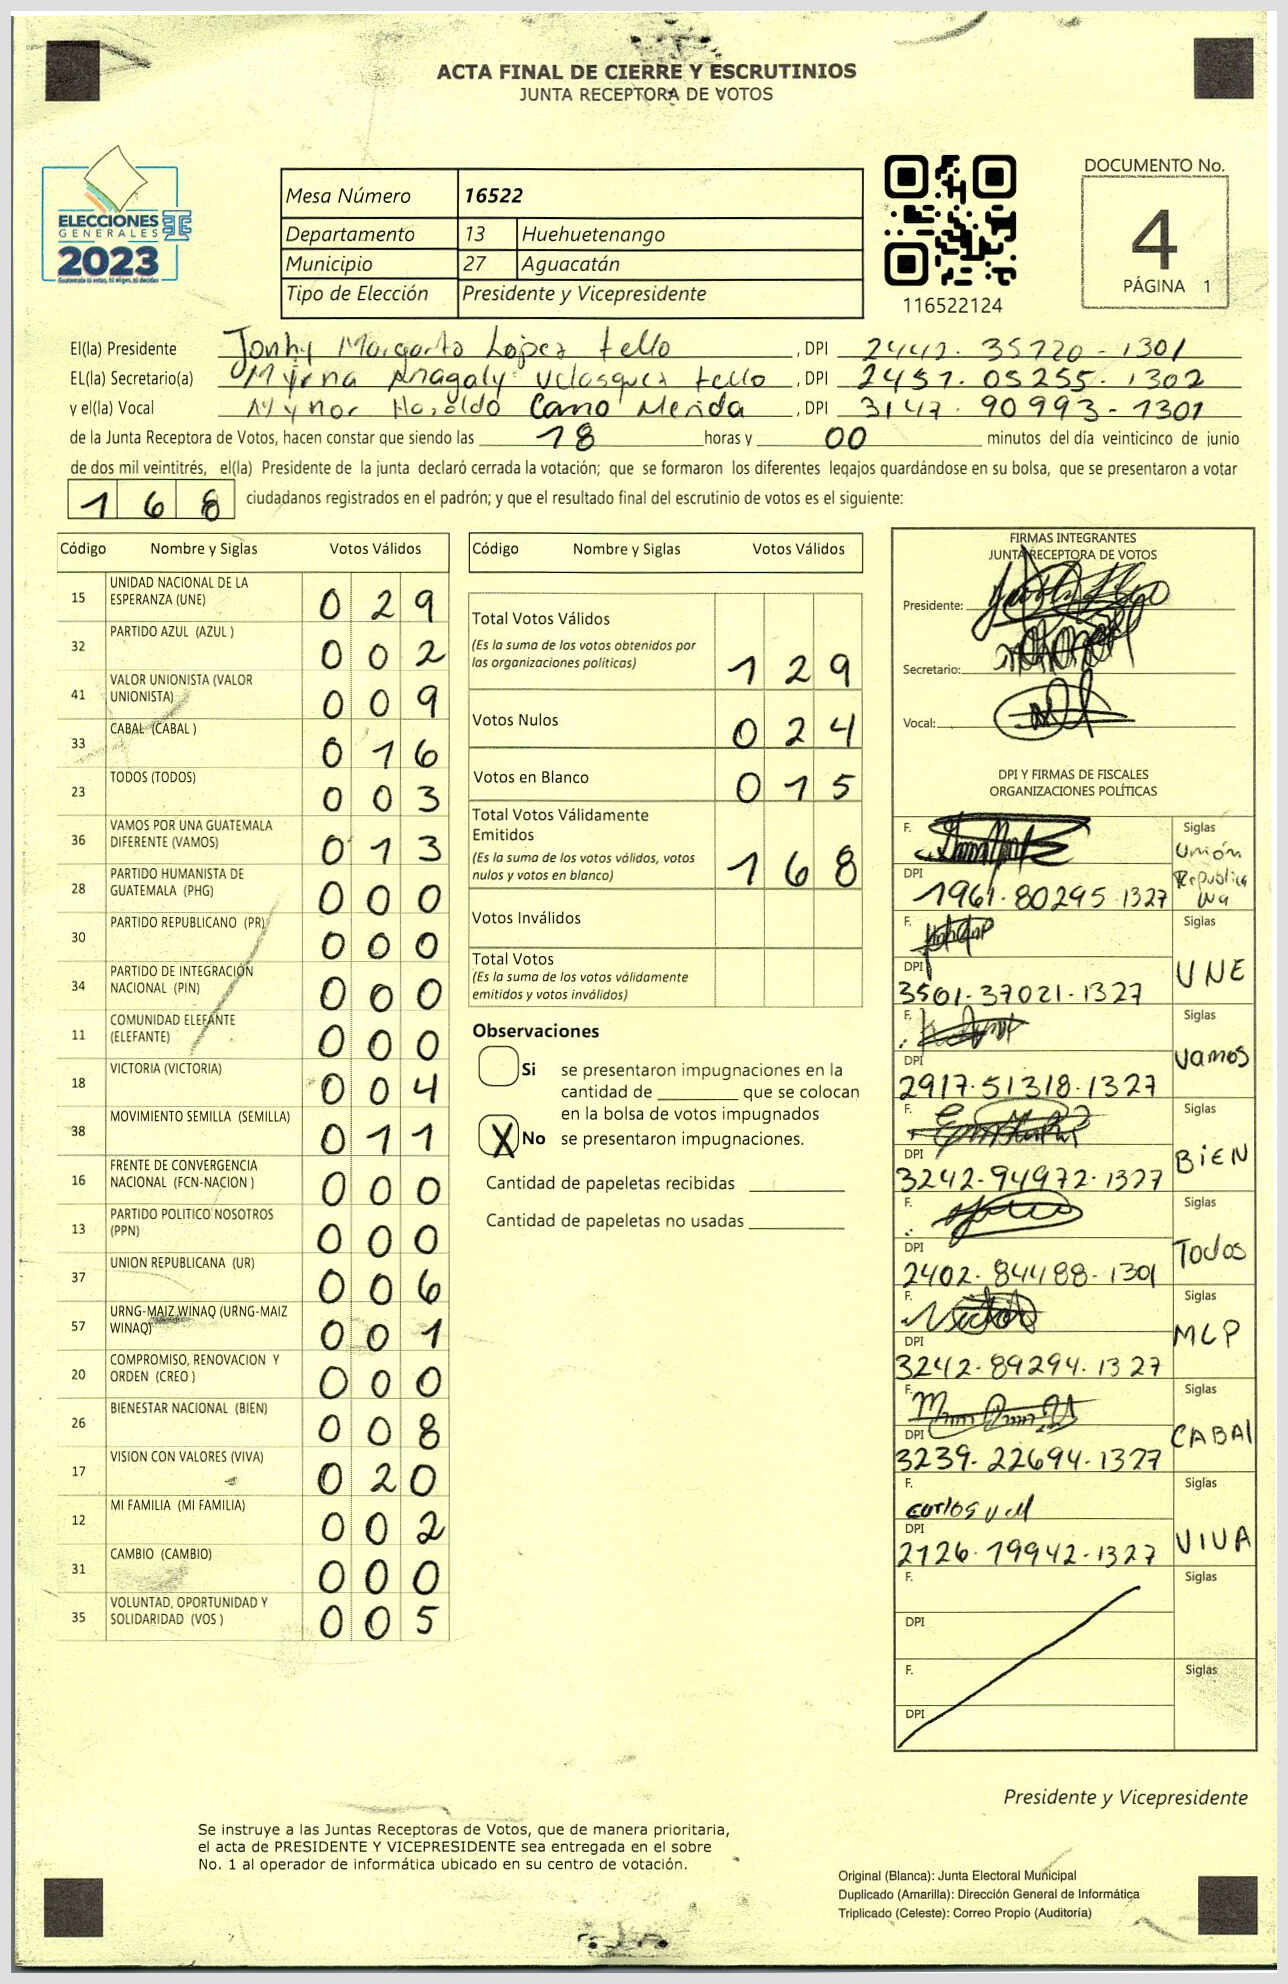 ACTA FINAL DE CIERRE Y ESCRUTINIOS
JUNTA RECEPTORA DE VOTOS
ELECCIONES
GENERALES
2023
Mesa Número 16522
Departamento 13 Huehuetenango
Municipio 27 Aguacatán
Tipo de Elección Presidente y Vicepresidente
116522124
DOCUMENTO No.
4
PÁGINA 1
El(la) Presidente Jonhy Margarito Lopez tello , DPI 2442. 35720 - 1301
EL(la) Secretario(a) Myrna Anagaly Velasquez tello , DPI 2457. 05255. 1302
y el(la) Vocal Mynor Haroldo Cano Merida , DPI 3147. 90993 - 1301
de la Junta Receptora de Votos, hacen constar que siendo las 18 horas y 00 minutos del día veinticinco de junio
de dos mil veintitrés, el(la) Presidente de la junta declaró cerrada la votación; que se formaron los diferentes legajos guardándose en su bolsa, que se presentaron a votar
168 ciudadanos registrados en el padrón; y que el resultado final del escrutinio de votos es el siguiente:
Código Nombre y Siglas Votos Válidos
15 UNIDAD NACIONAL DE LA ESPERANZA (UNE) 0 2 9
32 PARTIDO AZUL (AZUL ) 0 0 2
41 VALOR UNIONISTA (VALOR UNIONISTA) 0 0 9
33 CABAL (CABAL ) 0 1 6
23 TODOS (TODOS) 0 0 3
36 VAMOS POR UNA GUATEMALA DIFERENTE (VAMOS) 0 1 3
28 PARTIDO HUMANISTA DE GUATEMALA (PHG) 0 0 0
30 PARTIDO REPUBLICANO (PR) 0 0 0
34 PARTIDO DE INTEGRACIÓN NACIONAL (PIN) 0 0 0
11 COMUNIDAD ELEFANTE (ELEFANTE) 0 0 0
18 VICTORIA (VICTORIA) 0 0 4
38 MOVIMIENTO SEMILLA (SEMILLA) 0 1 1
16 FRENTE DE CONVERGENCIA NACIONAL (FCN-NACION ) 0 0 0
13 PARTIDO POLITICO NOSOTROS (PPN) 0 0 0
37 UNION REPUBLICANA (UR) 0 0 6
57 URNG-MAIZ WINAQ (URNG-MAIZ WINAQ) 0 0 1
20 COMPROMISO, RENOVACION Y ORDEN (CREO ) 0 0 0
26 BIENESTAR NACIONAL (BIEN) 0 0 8
17 VISION CON VALORES (VIVA) 0 2 0
12 MI FAMILIA (MI FAMILIA) 0 0 2
31 CAMBIO (CAMBIO) 0 0 0
35 VOLUNTAD, OPORTUNIDAD Y SOLIDARIDAD (VOS ) 0 0 5
Código Nombre y Siglas Votos Válidos
Total Votos Válidos
(Es la suma de los votos obtenidos por
las organizaciones políticas) 1 2 9
Votos Nulos 0 2 4
Votos en Blanco 0 1 5
Total Votos Válidamente
Emitidos
(Es la suma de los votos válidos, votos
nulos y votos en blanco) 1 6 8
Votos Inválidos
Total Votos
(Es la suma de los votos válidamente
emitidos y votos inválidos)
Observaciones
Si se presentaron impugnaciones en la
cantidad de ________ que se colocan
en la bolsa de votos impugnados
X No se presentaron impugnaciones.
Cantidad de papeletas recibidas
Cantidad de papeletas no usadas
FIRMAS INTEGRANTES
JUNTA RECEPTORA DE VOTOS
Presidente:
Secretario:
Vocal:
DPI Y FIRMAS DE FISCALES
ORGANIZACIONES POLÍTICAS
F. Siglas Unión Republica na
DPI 1961. 80295. 1327
F. Siglas UNE
DPI 3501-37021-1327
F. Siglas vamos
DPI 2917-51318-1327
F. Siglas BIEN
DPI 3242-94972-1327
F. Siglas Todos
DPI 2402-84488-1301
F. Siglas MLP
DPI 3242-89294-1327
F. Siglas CABAl
DPI 3239-22694-1327
F. carlos v M Siglas VIVA
DPI 2126-19942-1327
F. Siglas
DPI
F. Siglas
DPI
Presidente y Vicepresidente
Se instruye a las Juntas Receptoras de Votos, que de manera prioritaria,
el acta de PRESIDENTE Y VICEPRESIDENTE sea entregada en el sobre
No. 1 al operador de informática ubicado en su centro de votación.
Original (Blanca): Junta Electoral Municipal
Duplicado (Amarilla): Dirección General de Informática
Triplicado (Celeste): Correo Propio (Auditoría)